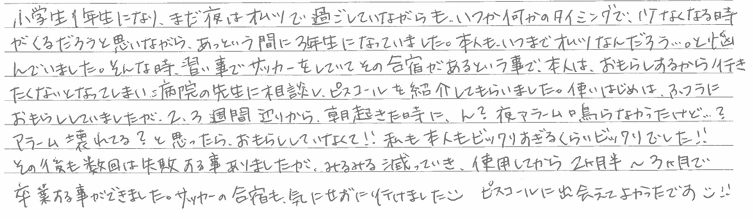 小学生1年生になり、まだ夜はオムツで過ごしていながらも、いつか何かのタイミングで、いらなくなる時
がくるだろうと思いながら、あっという間に3年生になっていました。本人も、いつまでオムツなんだろう…。と悩
んでいました。そんな時、習い事でサッカーをしていてその合宿があるという事で、本人は、おもらしするから行き
たくないとなってしまい、病院の先生に相談し、ピスコールを紹介してもらいました。使いはじめは、ふつうに
おもらししていましたが、2、3週間辺りから、朝起きた時に、ん?夜アラーム鳴らなかったけど…?
アラーム壊れてる?と思ったら、おもらししていなくて!!私も本人もビックリすぎるくらいビックリでした!!
その後も数回は失敗する事ありましたが、みるみる減っていき、使用してから2ヶ月半～3ヶ月で
卒業する事ができました。サッカーの合宿も、気にせずに行けました ピスコールに出会えてよかったです!!